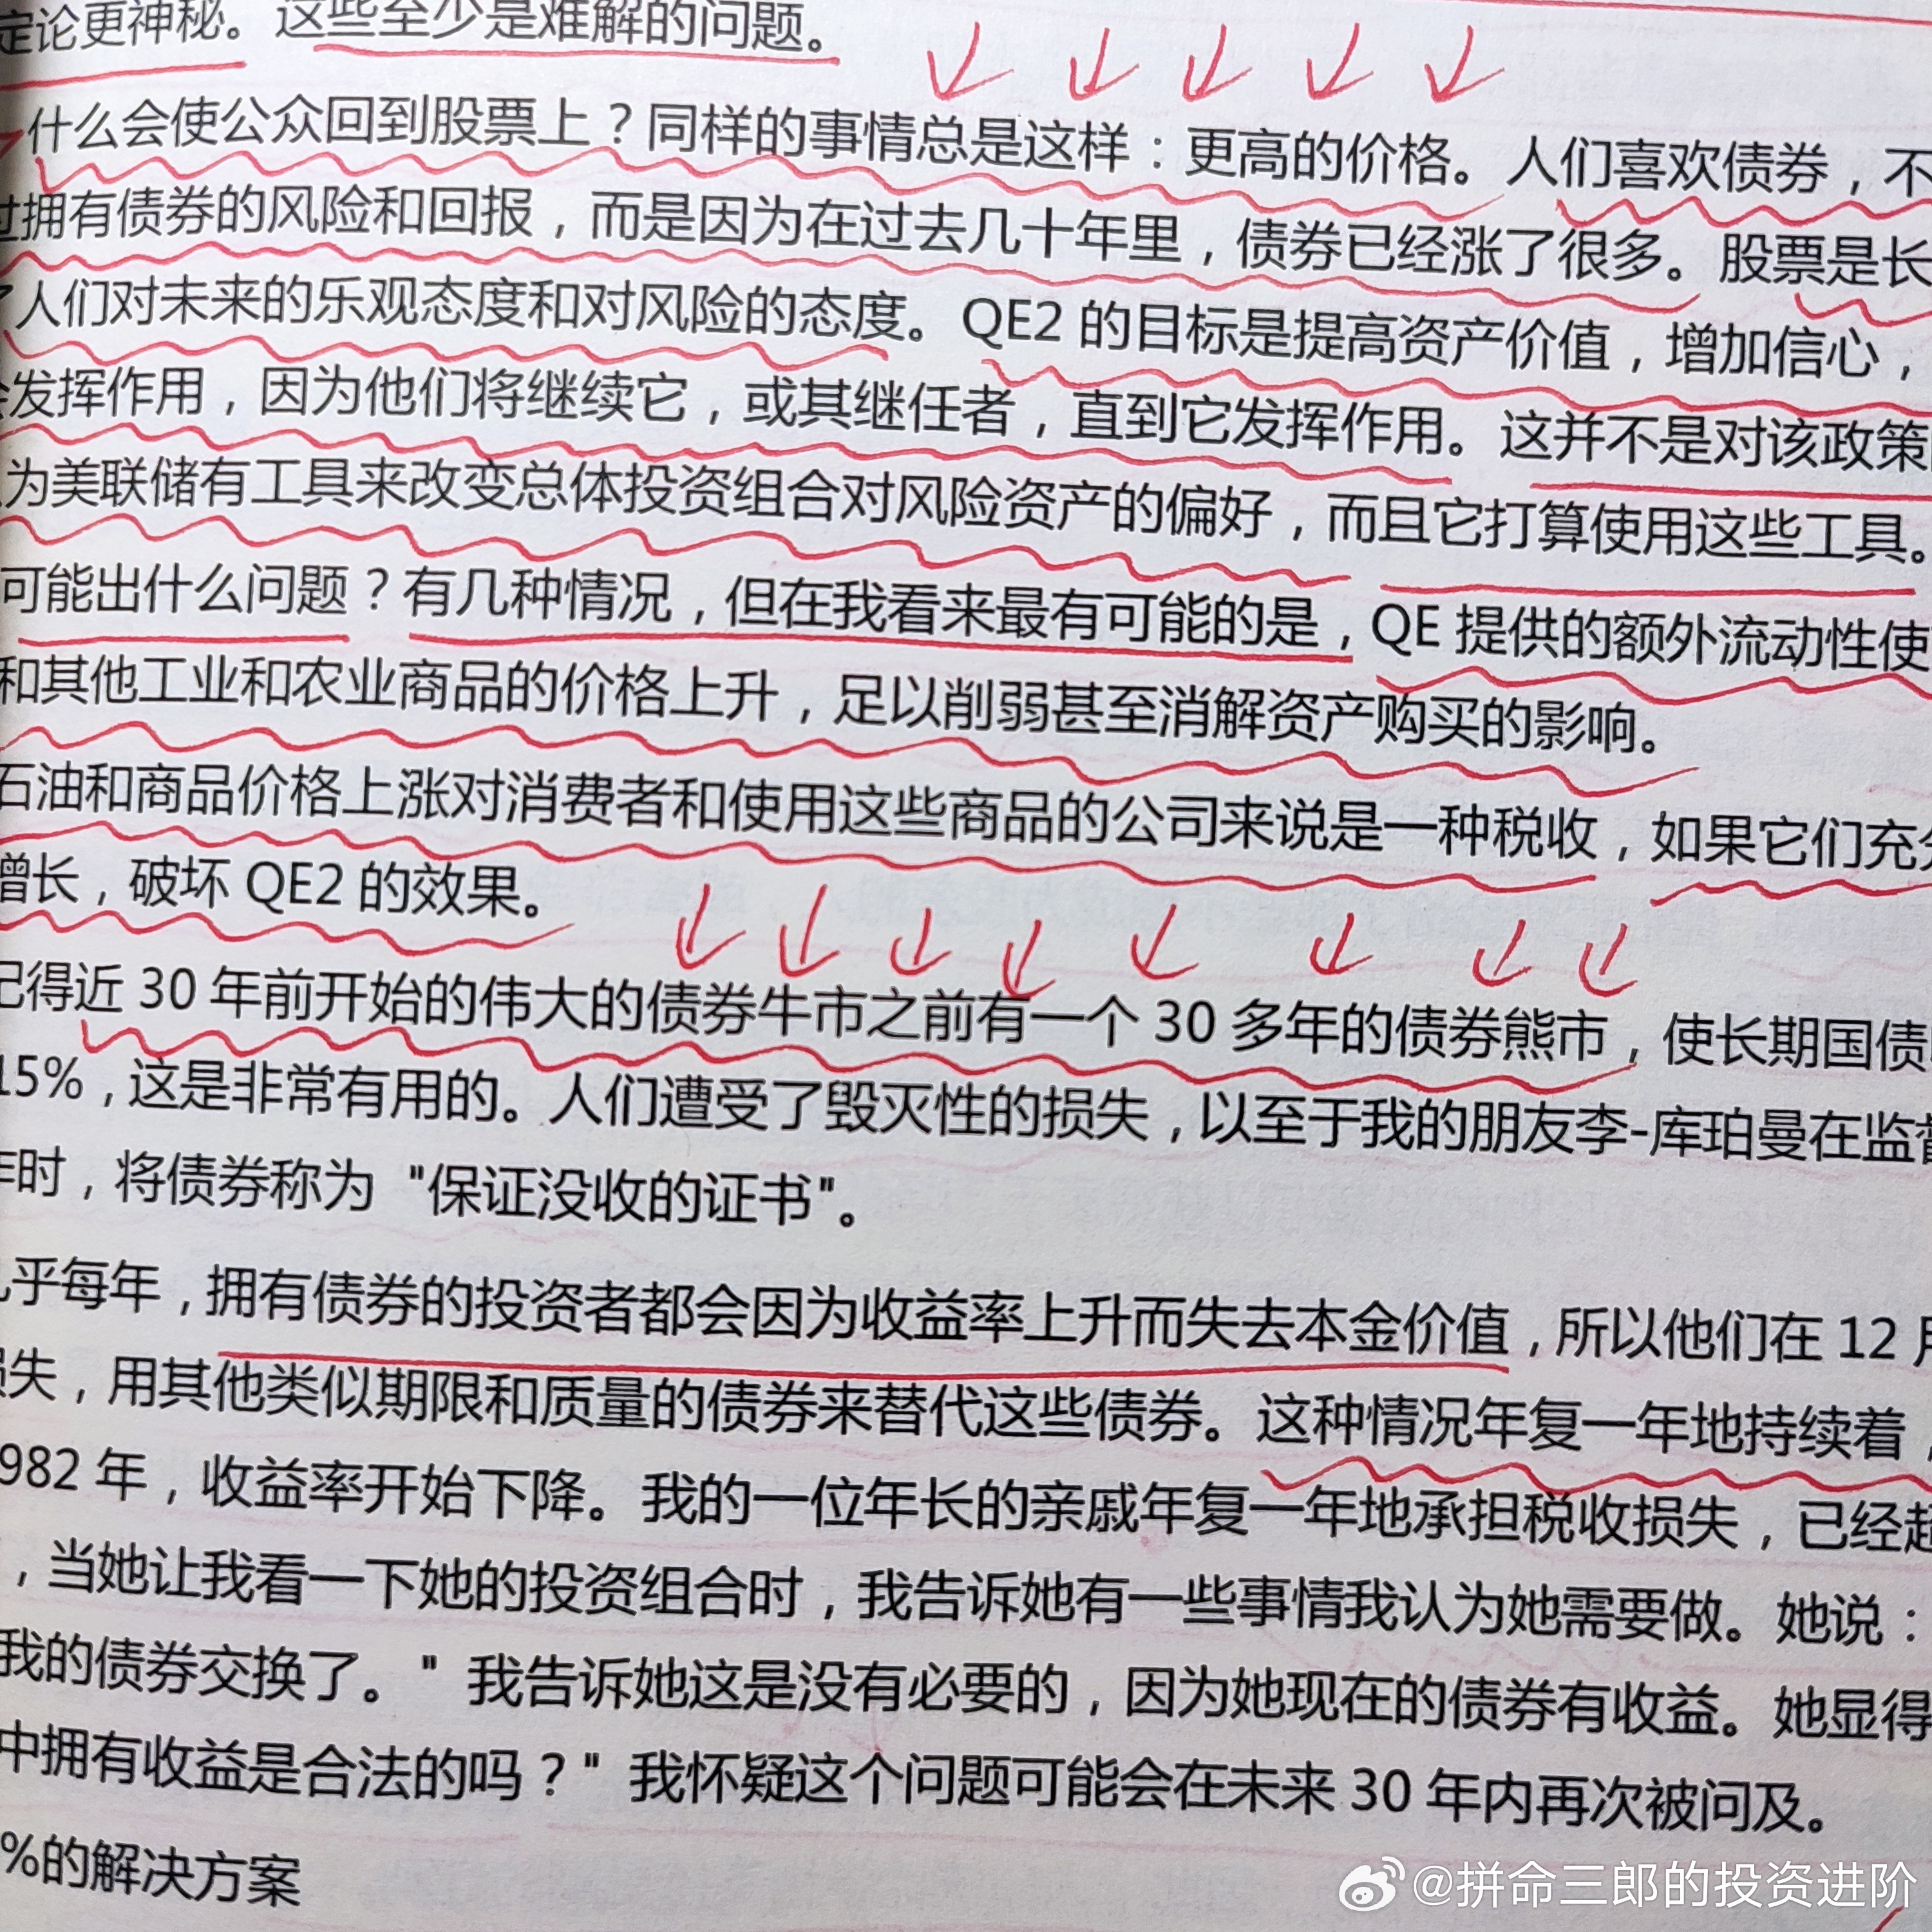 定论更神秘。这些至少是难解的问题。
什么会使公众回到股票上？同样的事情总是这样：更高的价格。人们喜欢债券，不
过拥有债券的风险和回报，而是因为在过去几十年里，债券已经涨了很多。股票是长
了人们对未来的乐观态度和对风险的态度。QE2 的目标是提高资产价值，增加信心，
会发挥作用，因为他们将继续它，或其继任者，直到它发挥作用。这并不是对该政策
为美联储有工具来改变总体投资组合对风险资产的偏好，而且它打算使用这些工具。
可能出什么问题？有几种情况，但在我看来最有可能的是，QE 提供的额外流动性使
和其他工业和农业商品的价格上升，足以削弱甚至消解资产购买的影响。
石油和商品价格上涨对消费者和使用这些商品的公司来说是一种税收，如果它们充分
增长，破坏 QE2 的效果。
记得近 30 年前开始的伟大的债券牛市之前有一个 30 多年的债券熊市，使长期国债
15%，这是非常有用的。人们遭受了毁灭性的损失，以至于我的朋友李-库珀曼在监督
作时，将债券称为 "保证没收的证书"。
几乎每年，拥有债券的投资者都会因为收益率上升而失去本金价值，所以他们在 12 月
损失，用其他类似期限和质量的债券来替代这些债券。这种情况年复一年地持续着，
982 年，收益率开始下降。我的一位年长的亲戚年复一年地承担税收损失，已经超
，当她让我看一下她的投资组合时，我告诉她有一些事情我认为她需要做。她说：
我的债券交换了。" 我告诉她这是没有必要的，因为她现在的债券有收益。她显得
中拥有收益是合法的吗？" 我怀疑这个问题可能会在未来 30 年内再次被问及。
%的解决方案
@拼命三郎的投资进阶